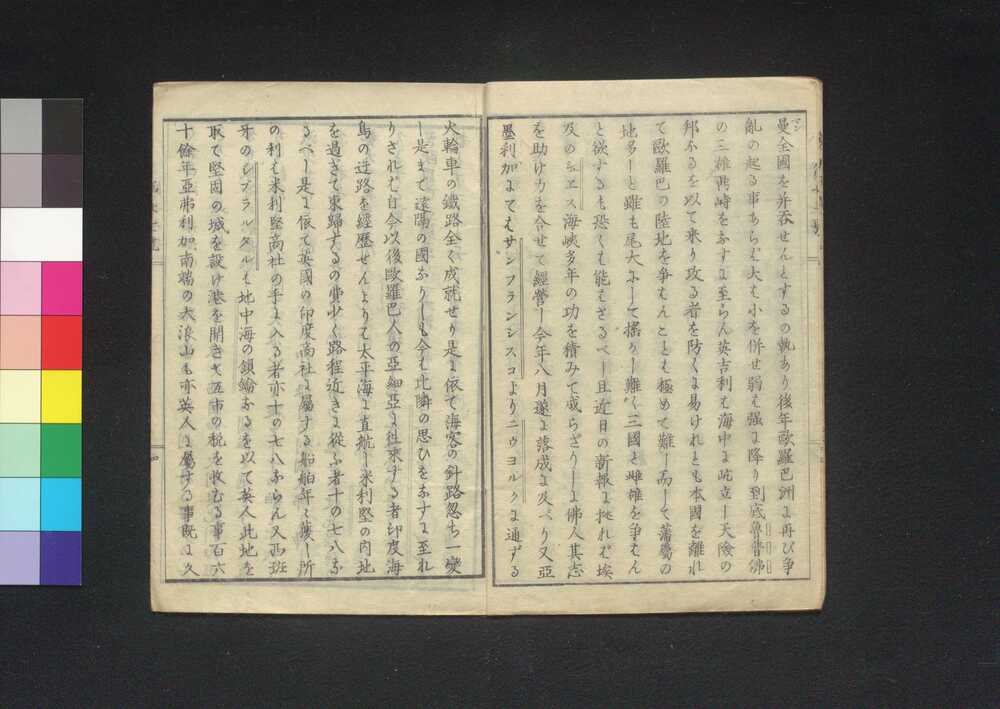 曼全國を并呑せんとするの執あり後年歐羅巴洲に再び争
亂の起る事あらば大は小を併せ弱は強に降り到底魯普佛
の三雄鼎峙をなすに至らん英吉利は海中に屹立し天險の
邦なるを以て来り攻る者を防くに易けれとも本國を離れ
て歐羅巴の陸地を争はんことは極めて難し而して藩屬の
地多しと雖も尾大にして掉かし難く三國と雌雄を争はん
と欲するも恐くは能はざるべし且近日の新報に拠れば埃
及のシエス海峽多年の功を積みて成らざりしに佛人其志
を助け力を合せて經營し今年八月遂に落成に及べり又亞
墨利加にてはサンフランシスコよりニウヨルクに通ずる
火輪車の鐵路全く成就せり是に依て海客の針路忽ち一變
し是まて遠隔の國なりしも今は比隣の思ひをなすに至れ
りされば自今以後歐羅巴人の亞細亞に徃来する者印度海
島の迂路を經歴せんよりて太平海に直航し米利堅の内地
を過きて東歸するの費少く路程近きに從ふ者十の七八な
るべし是に依て英國の印度商社に屬する船舶年々廢し所
の利は米利堅商社の手に入る者亦十の七八ならん又西班
牙のジブラルタルは地中海の鎖鑰なるを以て英人此地を
取て堅固の城を設け港を開き互市の税を收むる事百六
十餘年亞弗利加南端の大浪山も亦英人に屬する事既に久